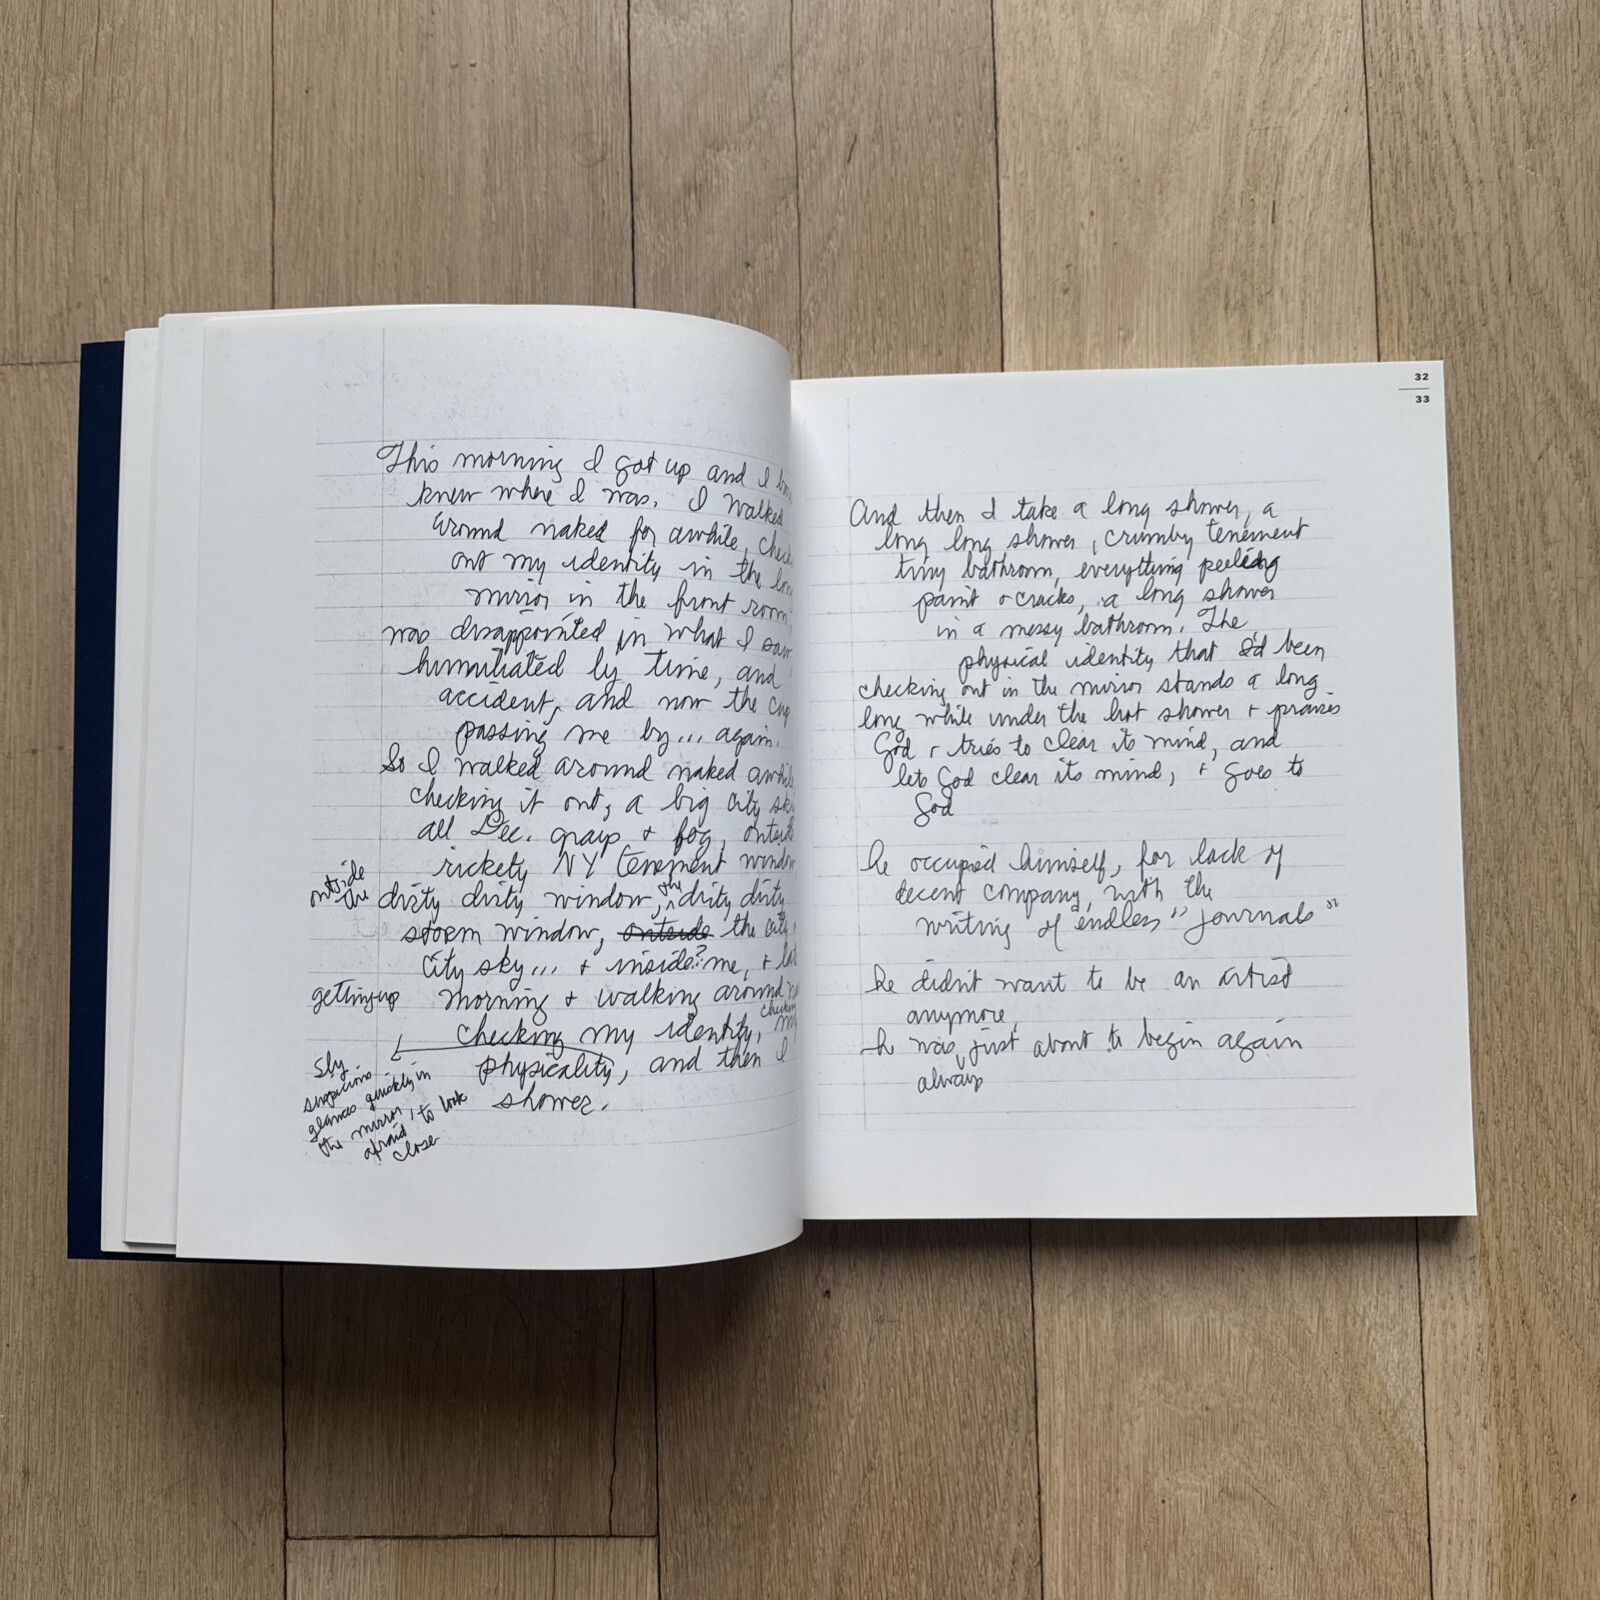 This morning I got up and I
knew where I was. I walked
around naked for awhile,
out my identity in the
mirror in the front room
was disappointed in what I saw
humiliated by time, and
accident, and now the
passing me by... again.
So I walked around naked awhile
checking it out, a big city
all Dec. gray + fog, outside
rickety NY tenement window
outside
the
dirty dirty window, the dirty dirty
storm window, outside the city
city sky... + inside? me, +
getting up
morning + walking around
checking
checking my identity,
physicality, and then I
shower.
sly
suspicious
glances quickly in
the mirror, to look
afraid
close
32
33
And then I take a long shower, a
long long shower, crumby tenement
tiny bathroom, everything peeling
paint + cracks, a long shower
in a messy bathroom. The
physical identity that I'd been
checking out in the mirror stands a long
long while under the hot shower + praises
God + tries to clear its mind, and
lets God clear its mind, + goes to
God
he occupied himself, for lack of
decent company, with the
writing of endless "journals"
he didn't want to be an artist
anymore,
he was just about to begin again
always